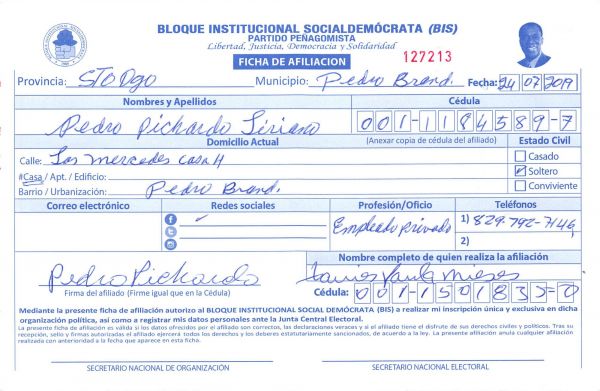 BLOQUE INSTITUCIONAL SOCIALDEMÓCRATA (BIS)
PARTIDO PEÑAGOMISTA
Libertad, Justicia, Democracia y Solidaridad
FICHA DE AFILIACION 127213
Provincia: STO Dgo Municipio: Pedro Brand. Fecha: 24 07 2019
Nombres y Apellidos Cédula
Pedro Pichardo Siriano 001-1184589-7
Domicilio Actual (Anexar copia de cédula del afiliado) Estado Civil
Calle: Las Mercedes casa # Casado
#Casa / Apt. / Edificio: ✓ Soltero
Barrio / Urbanización: Pedro Brand. Conviviente
Correo electrónico Redes sociales Profesión/Oficio Teléfonos
Empleado Privado 1) 829-792-7146
2)
Nombre completo de quien realiza la afiliación
Pedro Pichardo
Firma del afiliado (Firme igual que en la Cédula) Cédula: 001-1501833-0
Mediante la presente ficha de afiliación autorizo al BLOQUE INSTITUCIONAL SOCIAL DEMÓCRATA (BIS) a realizar mi inscripción única y exclusiva en dicha
organización política, así como a registrar mis datos personales ante la Junta Central Electoral.
La presente ficha de afiliación es válida si los datos ofrecidos por el afiliado son correctos, las declaraciones veraces y si el afiliado tiene el disfrute de sus derechos civiles y políticos. Tras su
recepción, sello y firmas autorizadas el afiliado ejercerá todos los derechos y los deberes estatutariamente sancionados, de acuerdo a la ley. La presente afiliación anula cualquier afiliación
realizada con anterioridad a la fecha que aparece en esta ficha.
SECRETARIO NACIONAL DE ORGANIZACIÓN SECRETARIO NACIONAL ELECTORAL